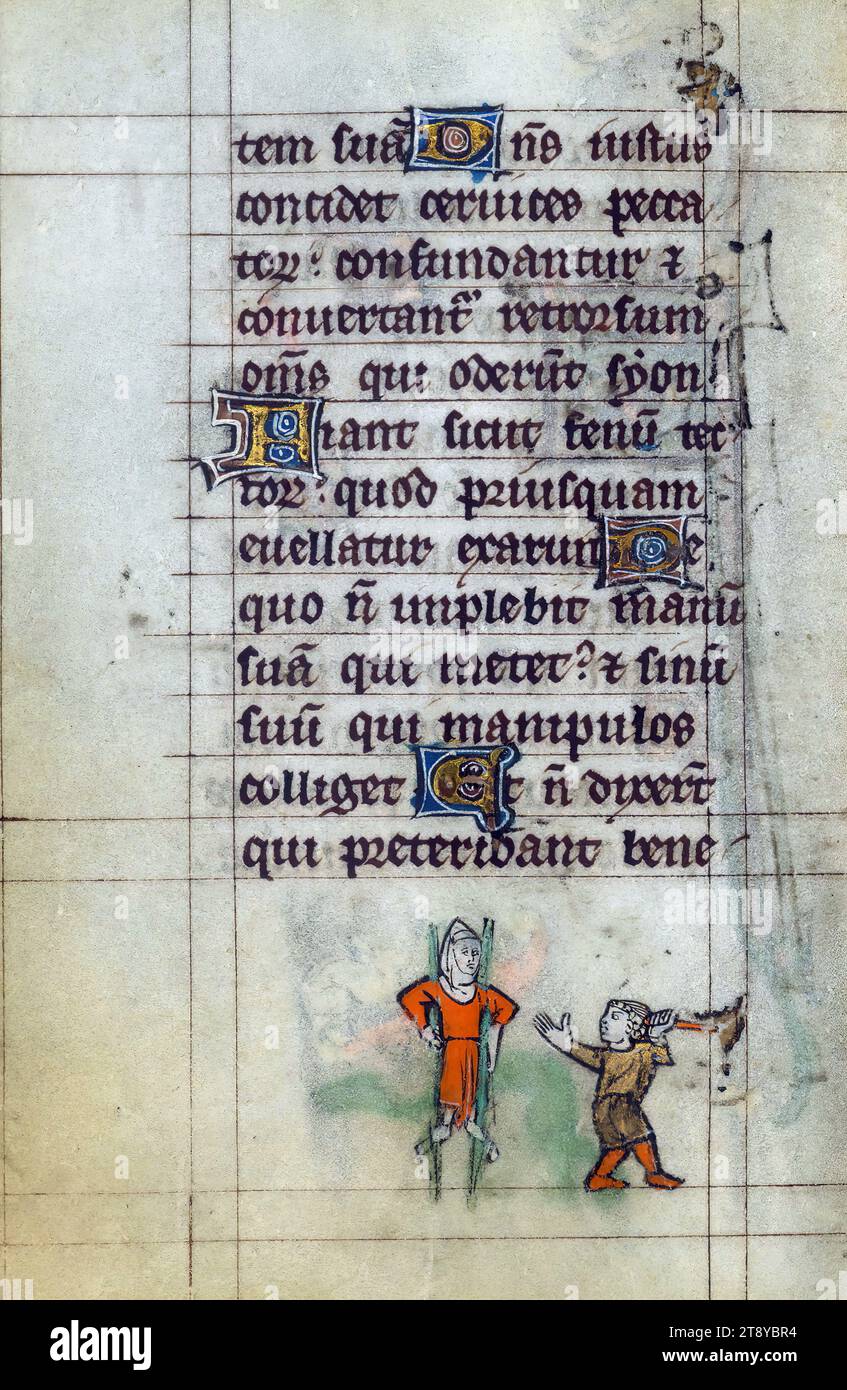 tem suā Dn̄s iustus
concidet ceruices pecca
torꝝ: confundantur ⁊
conuertantᷣ retrorsum
om̄s qui oderūt syon
Fiant sicut fenū tec
torꝝ: quod priusquam
euellatur exaruit De
quo n̄ implebit manū
suā qui metet: ⁊ sinū
suū qui manipulos
colliget Et n̄ dixerūt
qui preteribant bene
alamy
alamy
Image ID: 2T8YBR4
www.alamy.com